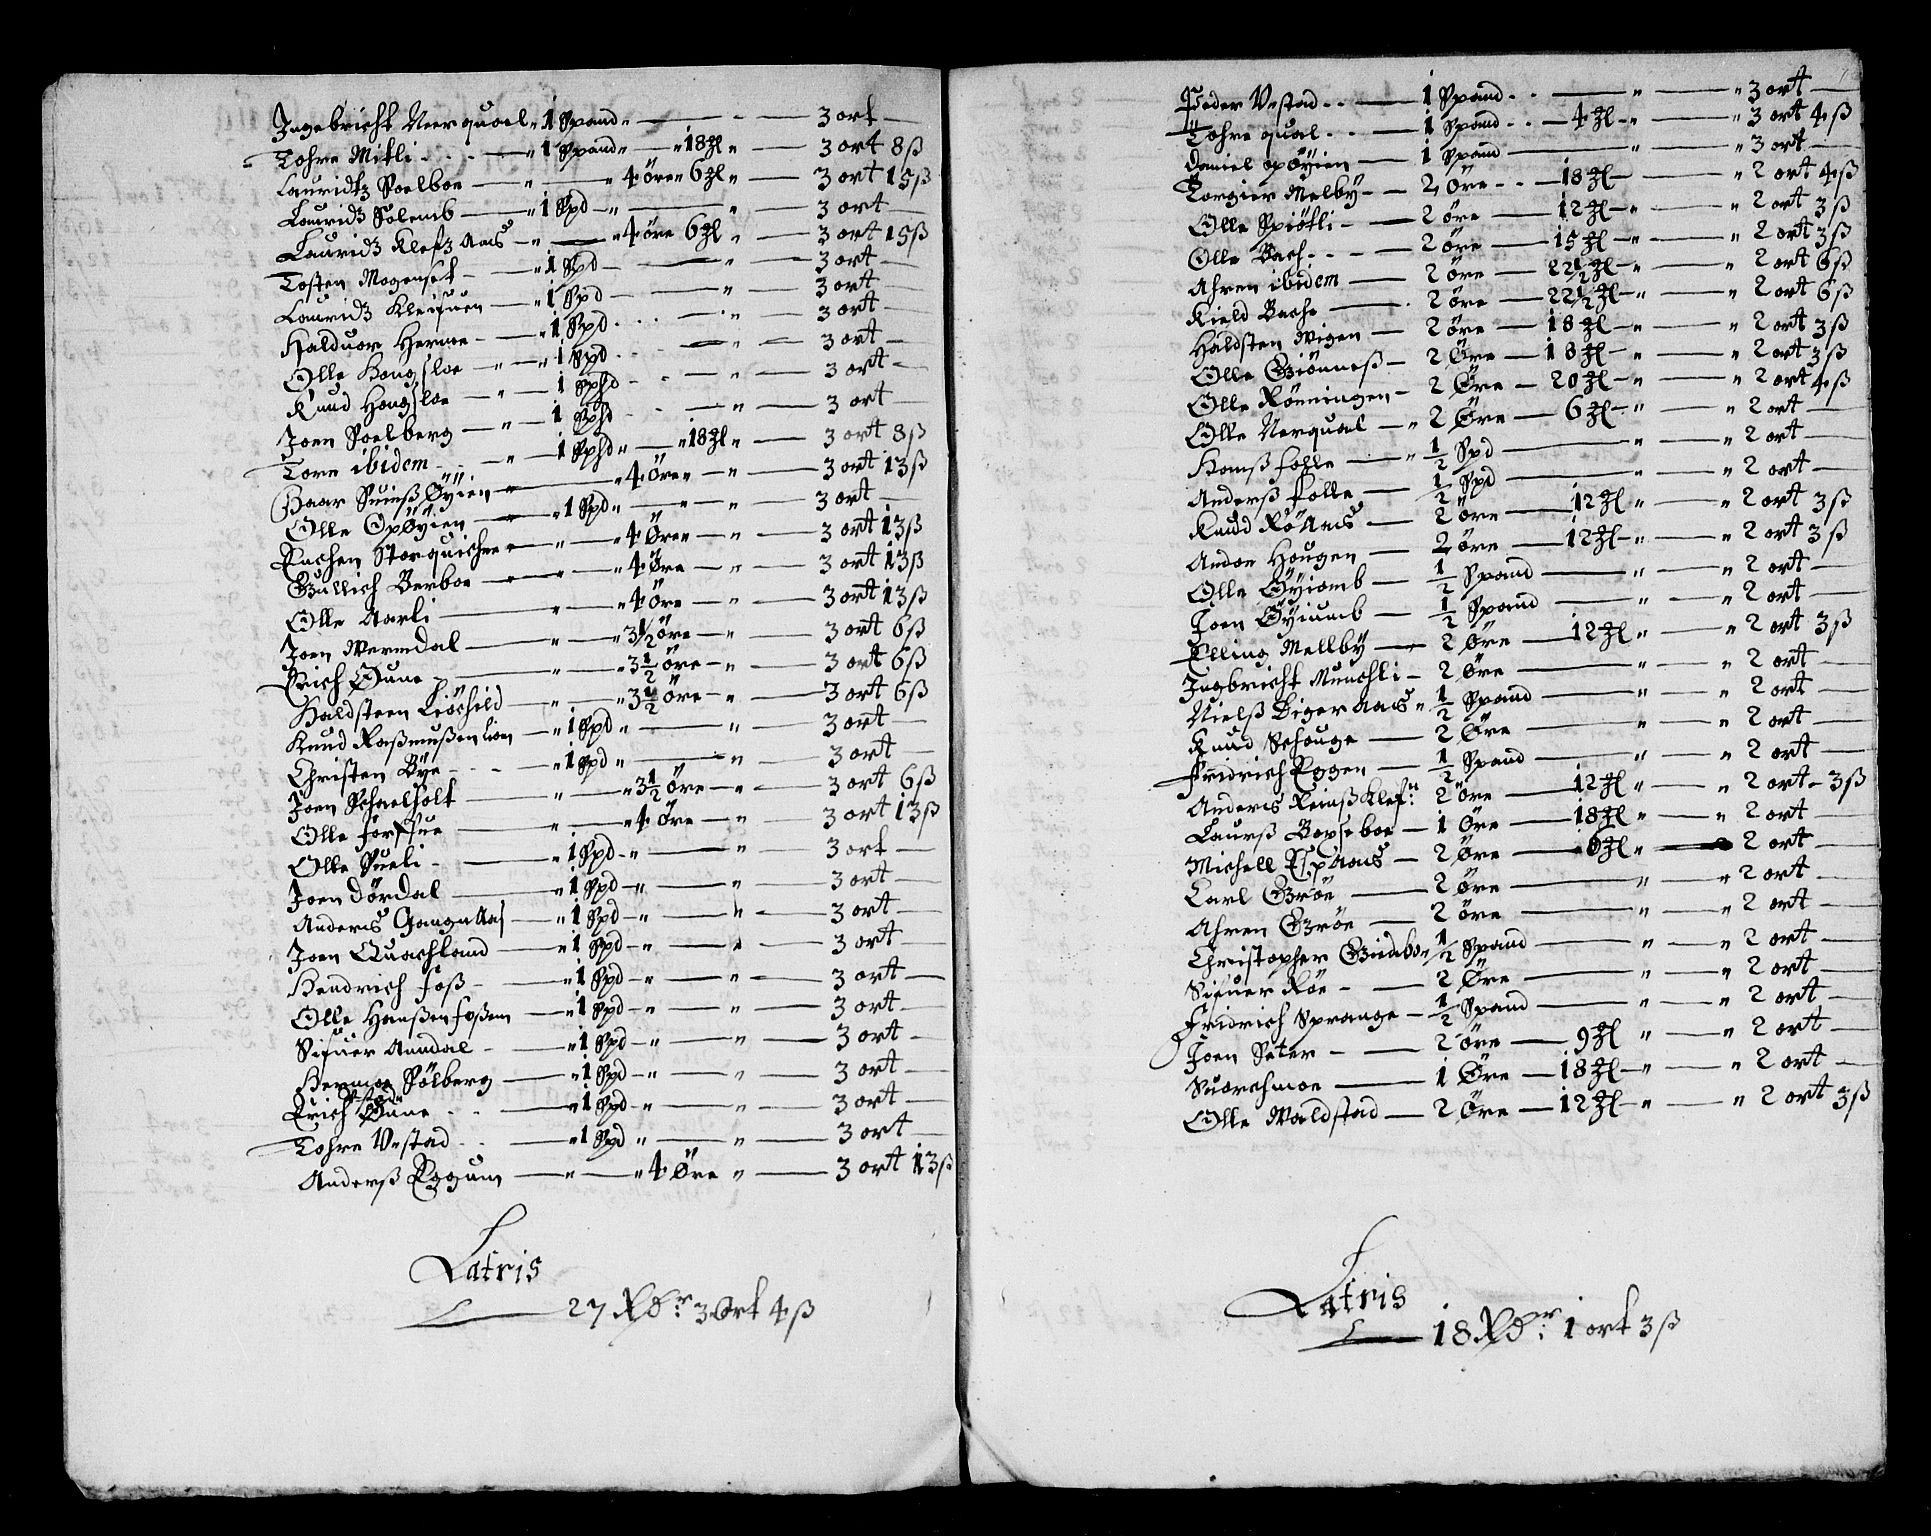 Ingebricht Neerqual 1 Spand 3 ort
Tohre Mitli 1 Spand 18 3 ort 8 ß
Lauridtz Soelboe 4 öre 6 3 ort 15 ß
Lauridtz Solemb 1 Spd 3 ort
Lauridtz Kleftz Aas 4 öre 6 3 ort 15 ß
Tosten Mogenset 1 Spd 3 ort
Lauridtz Kleifuen 1 Spd 3 ort
Halduor Hermoe 1 Spd 3 ort
Olle Hougsloe 1 Spd 3 ort
Knud Hougsloe 1 Sphd 3 ort
Joen Soelberg 1 Sphd 3 ort
Tore ibidem 1 Sphd 18 3 ort 8 ß
Baar Suinß Öyien 4 Öre 3 ort 13 ß
Olle Opöyien 1 Spd 3 ort
Storquichne 4 Öre 3 ort 13 ß
Gullich Berboe 4 Öre 3 ort 13 ß
Olle Aarli 4 öre 3 ort 13 ß
Joen Wermdal 3½ öre 3 ort 6 ß
Erich Öune 3½ öre 3 ort 6 ß
Haldsteen Liöchild 3½ öre 3 ort 6 ß
Knud Raßmußen Lion 1 Spd 3 ort
Christen Bÿe 1 Spd 3 ort
Joen Schaelholt 3½ Öre 3 ort 6 ß
Olle 4 Öre 3 ort 13 ß
Olle Sueli 1 Spd 3 ort
Joen Dördal 1 Spd 3 ort
Anders Gangn Aas 1 Spd 3 ort
Joen Quachland 1 Spd 3 ort
Hendrich Foß 1 Spd 3 ort
Olle Hanßen Foßem 1 Spd 3 ort
Sifuer Anndal 1 Spd 3 ort
Hermoe Sölberg 1 Spd 3 ort
Erich Önne 1 Spd 3 ort
Tohre Vestad 1 Spd 3 ort
Anderß Eggum 4 Öre 3 ort 13 ß
Latris
27 Rdr 3 Ort 4 ß
Peder Vestad 1 Spand 3 ort
Tohre qual 1 Spand 4 3 ort 4 ß
Daniel opöyien 1 Spand 3 ort
Torgier Melbÿ 2 Öre 18 2 ort 4 ß
Olle Spiötli 2 öre 12 2 ort 3 ß
Olle Bach 2 öre 15 2 ort 3 ß
Ahren ibidem 2 öre 22½ 2 ort 6 ß
Kield Bache 2 öre 22½ 2 ort 6 ß
Haldsten Wigen 2 öre 18 2 ort 3 ß
Olle Giönneß 2 Öre 18 2 ort 3 ß
Olle Rönningen 2 Öre 20 2 ort 4 ß
Olle Nerqual 2 Öre 6 2 ort
Hanß Folle ½ Spd 2 ort
Anderß Folle ½ Spd 2 ort
Knud Rö Aas 2 öre 12 2 ort 3 ß
Andor Hougen 2 öre 12 2 ort 3 ß
Olle Öyiomb ½ Spand 2 ort
Joen Öyiumb ½ Spand 2 ort
Elling Mellbÿ 2 Öre 12 2 ort 3 ß
Ingbricht Munchli 2 Öre 2 ort
Nielß Diger Aas ½ Spand 2 ort
Knud Schouge 2 Öre 2 ort
Fridrich Eggen ½ Spand 2 ort
Anders Reinß Klefn 2 öre 12 2 ort 3 ß
Laurß Bopseboe 1 Öre 18 2 ort
Michell Esp Aas 2 öre 6 2 ort
Carl Gröe 2 öre 2 ort
Ahren Gröe 2 öre 2 ort
Christopher ½ Spand 2 ort
Sifuer Röe 2 Öre 2 ort
Fridrich Sprauge ½ Spand 2 ort
Joen Seter 2 öre 9 2 ort
Suorchmoe 1 Öre 18 2 ort
Olle Waldstad 2 Öre 12 2 ort 3 ß
Latris
18 Rdr 1 ort 3 ß